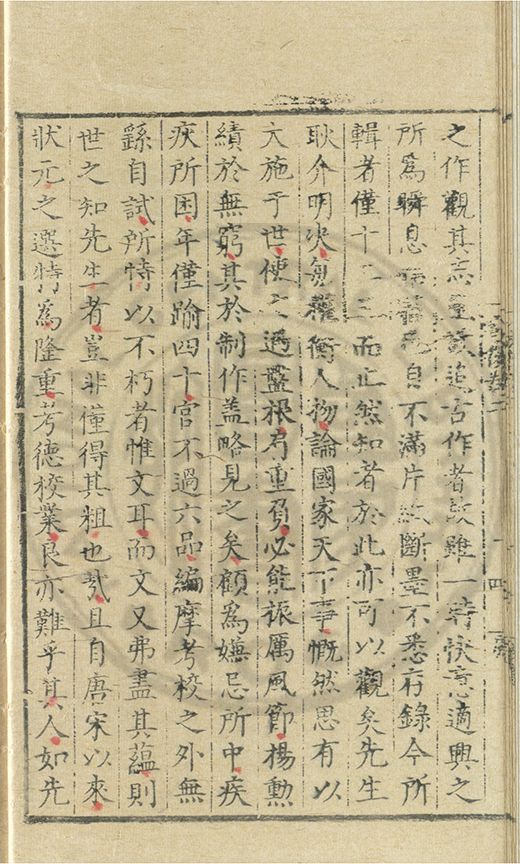 之作觀其志量追古作者故雖一時快意適興之
所爲瞬息不滿片紙斷墨不悉存錄今所
輯者僅十二三而止然知者於此亦可以觀矣先生
耿介明決權衡人物論國家天下事慨然思有以
大施于世使之遇盤根肩重負必能振厲風節楊勳
績於無窮其於制作盖略見之矣顧爲嫌忌所中疾
疾所困年僅踰四十官不過六品編摩考校之外無
繇自試所恃以不朽者惟文耳而文又弗盡其蘊則
世之知先生者豈非僅得其粗也㢤且自唐宋以來
狀元之選特爲隆重考德校業良亦難乎其人如先